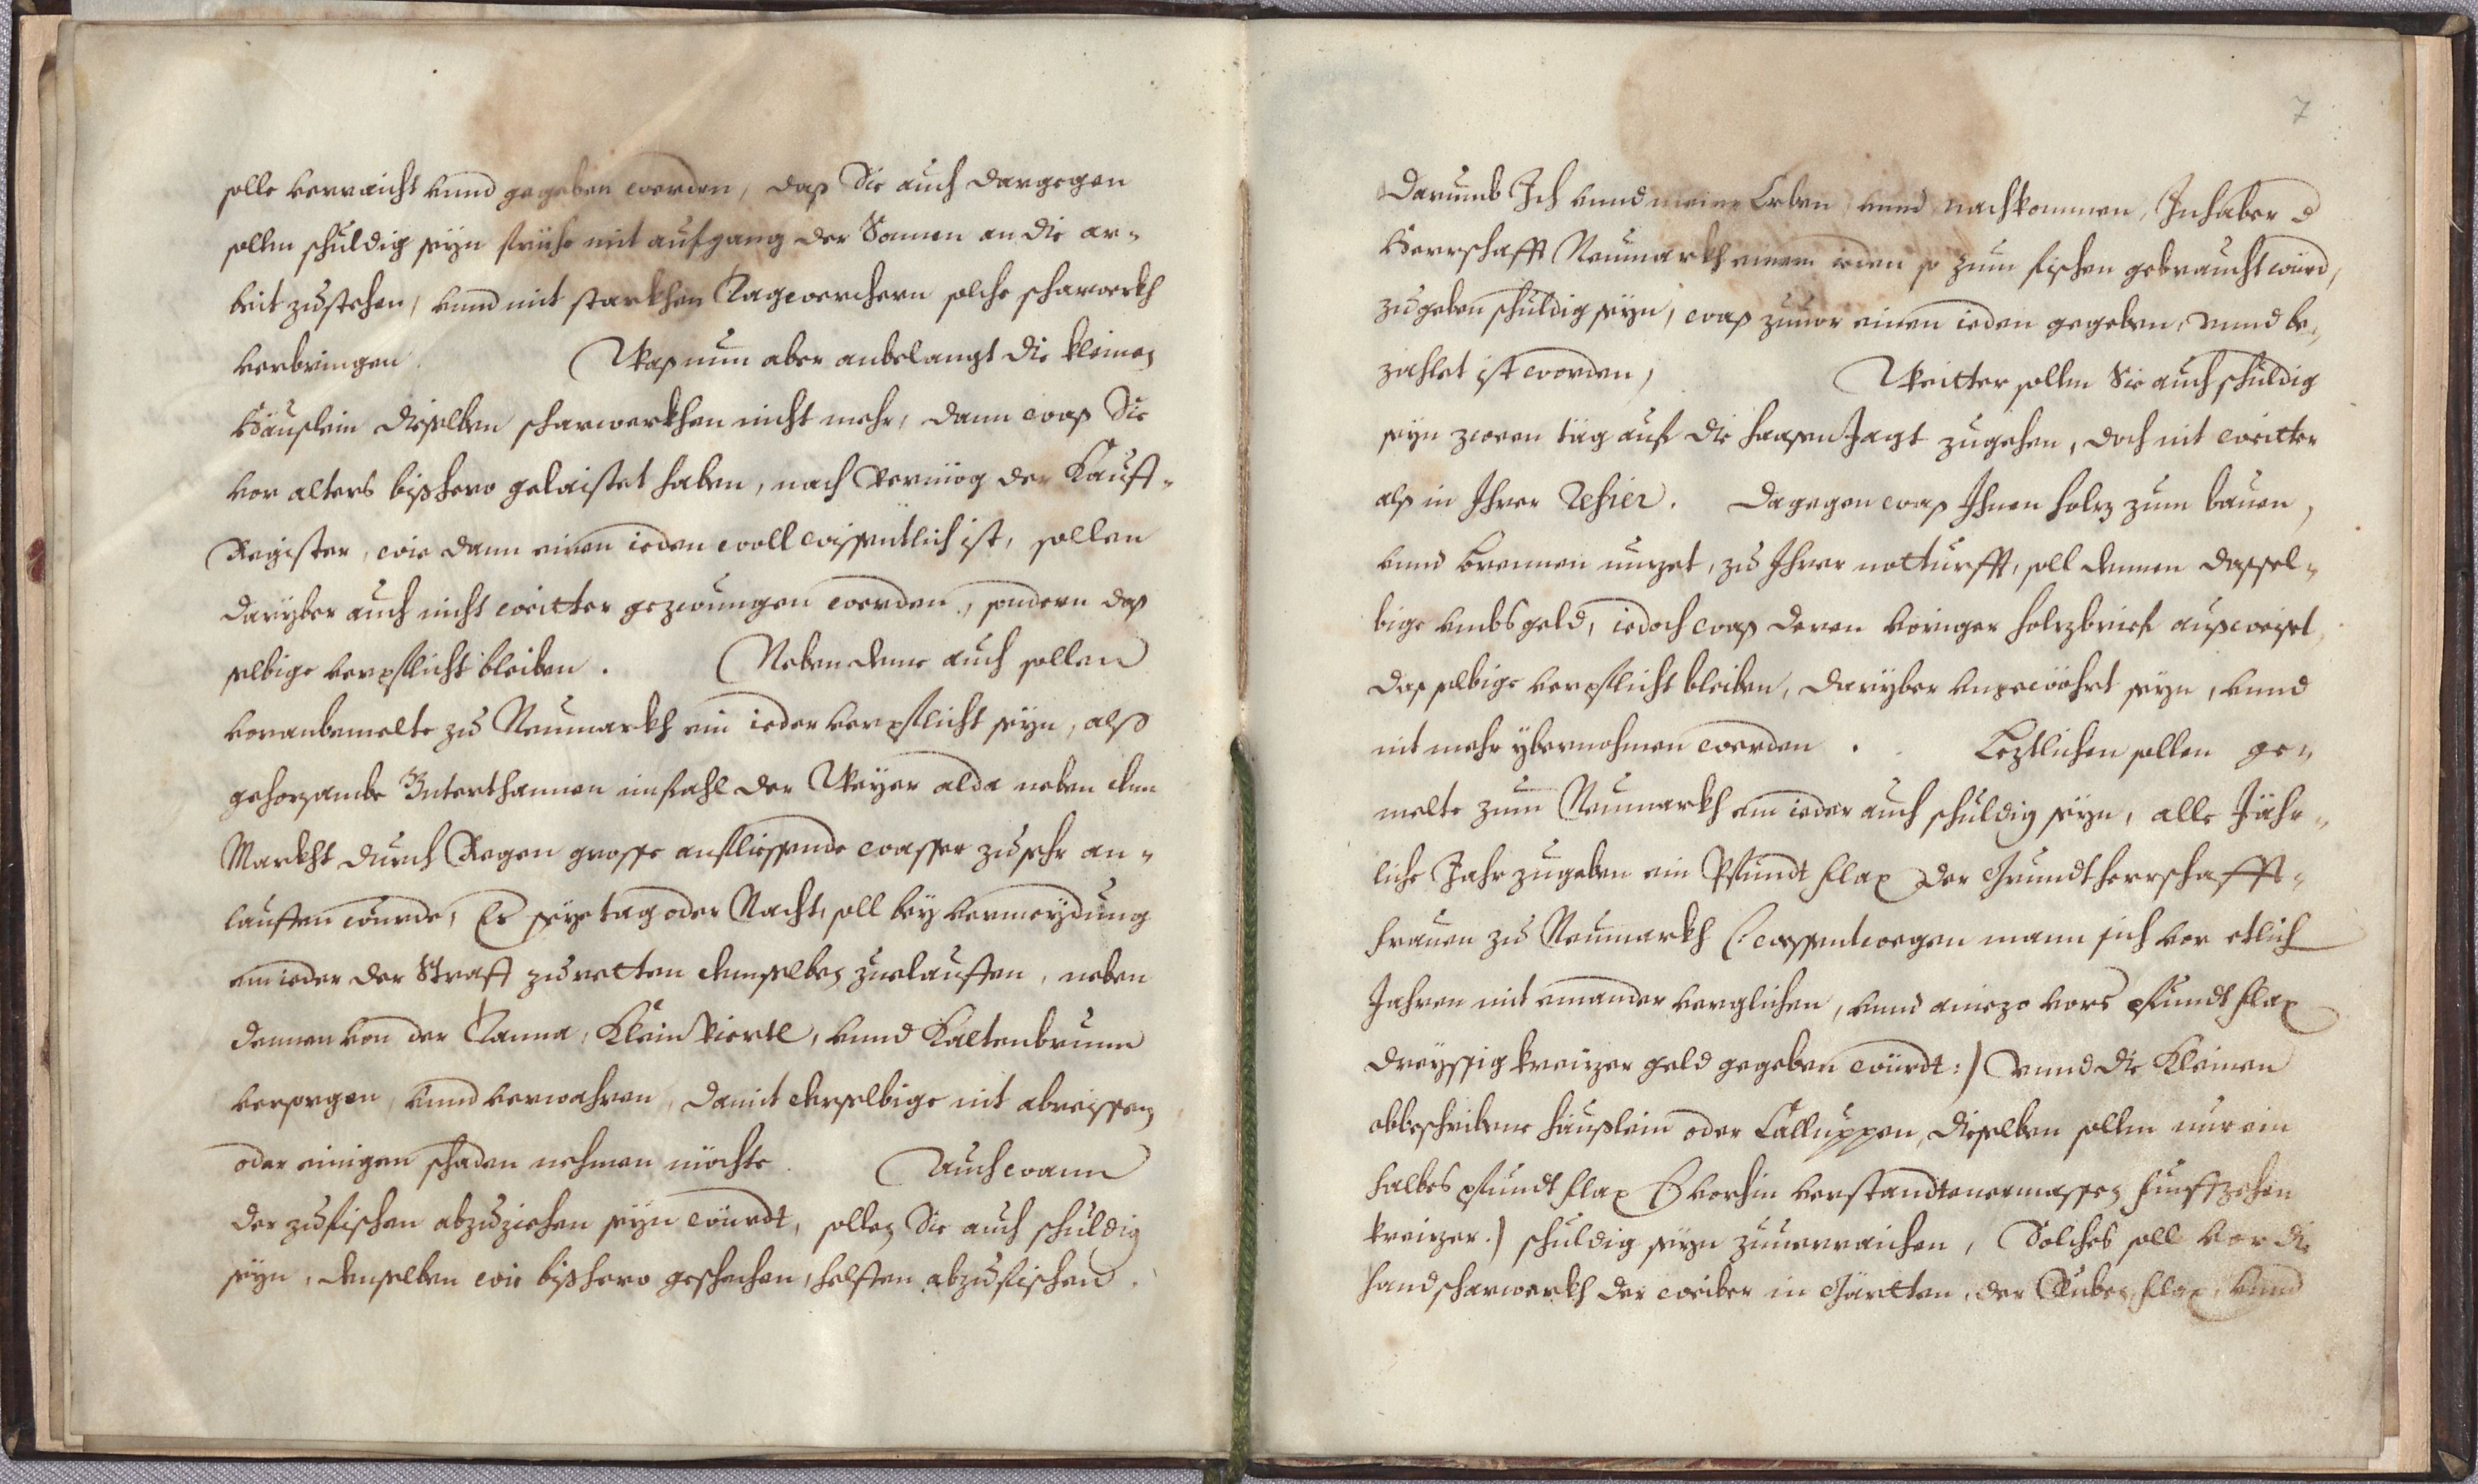 solle verraicht vnnd gegeben werden, daß Sie auch dargegen
sollen schuldig seyn früehe mit aufgang der Sonnen an die ar-
beit zustehen, vnnd mit starkhen Tagwerchern solche scharwerkh
verbringen. Waß nun aber anbelangt die kleinen
Häuslein dieselben scharwerkhen nicht mehr, dann waß Sie
vor alters bißhero gelaistet haben, nach Vermög der Kauff-
Register, wie dann einen ieden woll wissentlich ist, sollen
darÿber auch nicht weitter gezwungen werden, sondern daß
selbige verpflicht bleiben. Neben deme auch sollen
voranbemelte zu Neumarkh ein ieder verpflicht seyn, alß
gehorsambe Vnterthannen imfahl der Weÿer alda neben den
Markht durch Regen grosse anfliessende wasser zu sehr an-
lauffen wurde, Es seÿe tag oder Nacht, soll beÿ vermeÿdung
ein ieder der Straff zu retten demselben zuelauffen, neben
dennen von der Tanna, Klein Viertl, vnnd Kaltenbrunn
versorgen, vnnd verwahren, damit derselbige nit abreissen
oder einigen schaden nehmen möchte. Auch wann
der zufischen abzuziehen seyn würdt, sollen Sie auch schuldig
seyn, denselben wie bißhero geschechen, helffen abzufischen.
7
Darumb Ich vnnd meine Erben vnnd nachkommen, Inhaber d
Herrschafft Neumarkh einem ieden so zum fischen gebraucht wird,
zugeben schuldig seyn, waß zuuor einen ieden gegeben, vnnd be-
zahlet ist worden, Weitter sollen Sie auch schuldig
seyn zween täg auf die haasen Jagt zugehen, doch nit weitter
alß in Ihrer Refier. Dagegen waß Ihnen holz zum bauen,
vnnd Brennen nuzet, zu Ihrer notturfft, soll dennen dassel-
bige vmbs geld, iedoch waß deren voriger holzbrief außweiset,
daß selbige verpflicht bleiben, darÿber vngewöhrt seyn, vnnd
nit mehr ÿbernohmen werden. Leztlichen sollen ge-
melte zum Neumarkh ein ieder auch schuldig seyn, alle Jähr-
liche Jahr zugeben ein Pfundt flax der Grundtherrschaffts-
frauen zu Neumarkh (: wessentwegen mann sich vor etlich
Jahren mit einander verglichen, vnnd aniezo vors pfundt flax
dreyssig kreüzer geld gegeben würdt :) vnnd die Kleinen
obbeschribene häußlein oder Calluppen, dieselben sollen nur ein
halbes pfundt flax (: vorhin verstandtenermassen funffzehen
kreüzer .) schuldig seyn zuuerraichen, Solches soll vor die
handscharwerkh der weiber in Gärtten, der Rueben, flax, vnnd